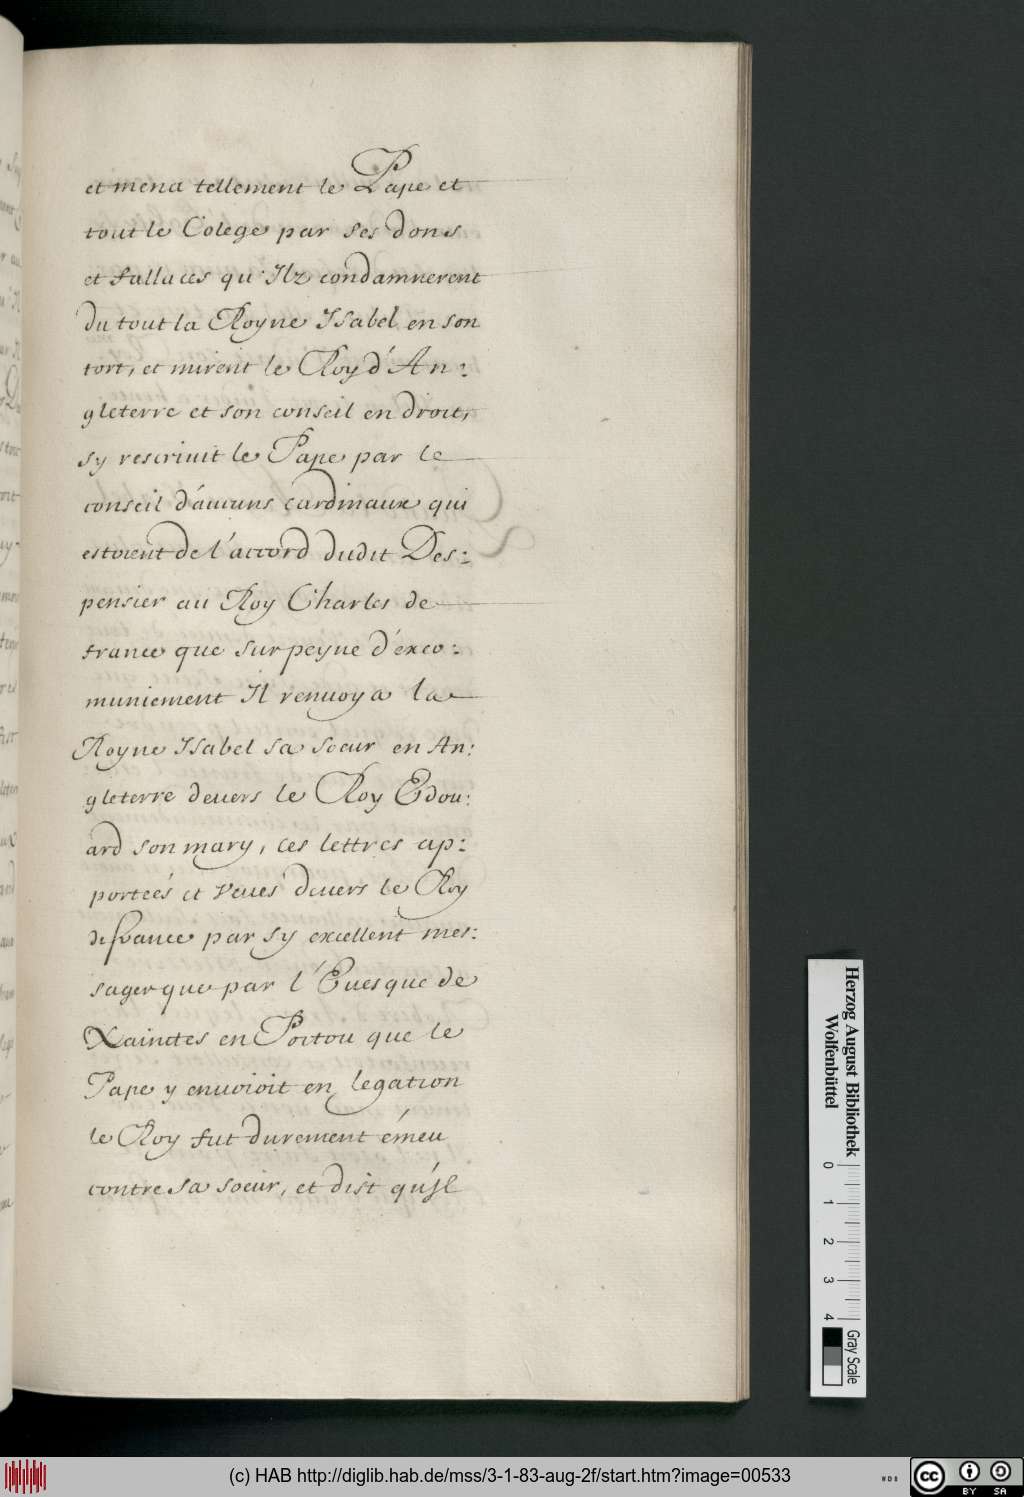 et mena tellement le Pape et
tout le Colege par ses dons
et fallaces qu'Ilz condamnerent
du tout la Royne Isabel en son
tort, et mirent le Roy d'An:
gleterre et son conseil en droit,
sy rescriuit le Pape par le
conseil d'aucuns cardinaux qui
estoient de l'accord dudit Des:
pensier au Roy Charles de
france que sur peyne d'éxco:
muniement Il renuoya la
Royne Isabel sa soeur en An:
gleterre deuers le Roy Edou:
ard son mary, ces lettres ap:
porteés et veues deuers le Roy
de france par sy excellent mes:
sager que par l'Euesque de
Xainctes en Poitou que le
Pape y enuoioit en legation
le Roy fut durement émeu
contre sa soeur, et dist qu'Jl
Herzog August Bibliothek
Wolfenbüttel
0 1 2 3 4
Gray Scale
(c) HAB http://diglib.hab.de/mss/3-1-83-aug-2f/start.htm?image=00533
cc BY SA